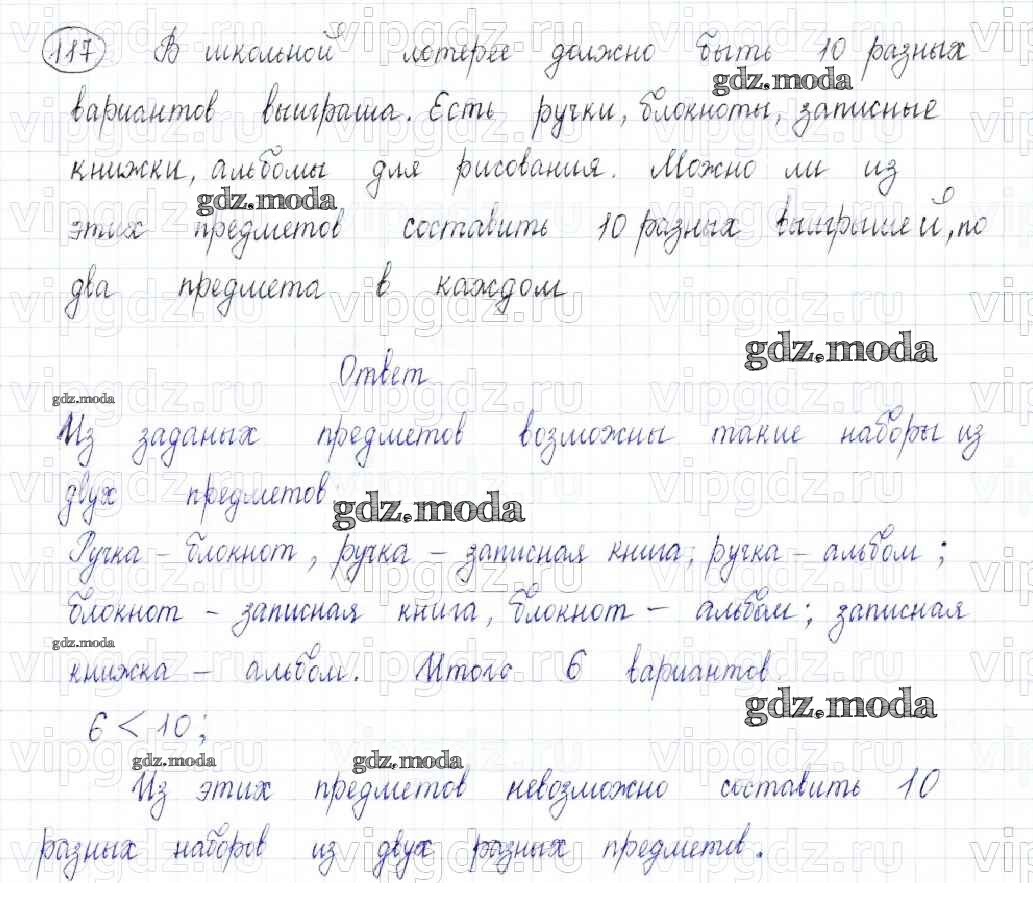 117 В школьной лотерее должно быть 10 разных
gdz.moda
вариантов выиграша. Есть ручки, блокноты, записные
книжки, альбомы для рисования. Можно ли из
gdz.moda
этих предметов составить 10 разных выигрышей, по
два предмета в каждом
gdz.moda
Ответ
gdz.moda
Из заданых предметов возможны такие наборы из
двух предметов
gdz.moda
Ручка – блокнот, ручка – записная книга; ручка – альбом;
блокнот – записная книга, блокнот – альбом; записная
gdz.moda
книжка – альбом. Итого 6 вариантов
gdz.moda
6 < 10;
gdz.moda gdz.moda
Из этих предметов невозможно составить 10
разных наборов из двух разных предметов.